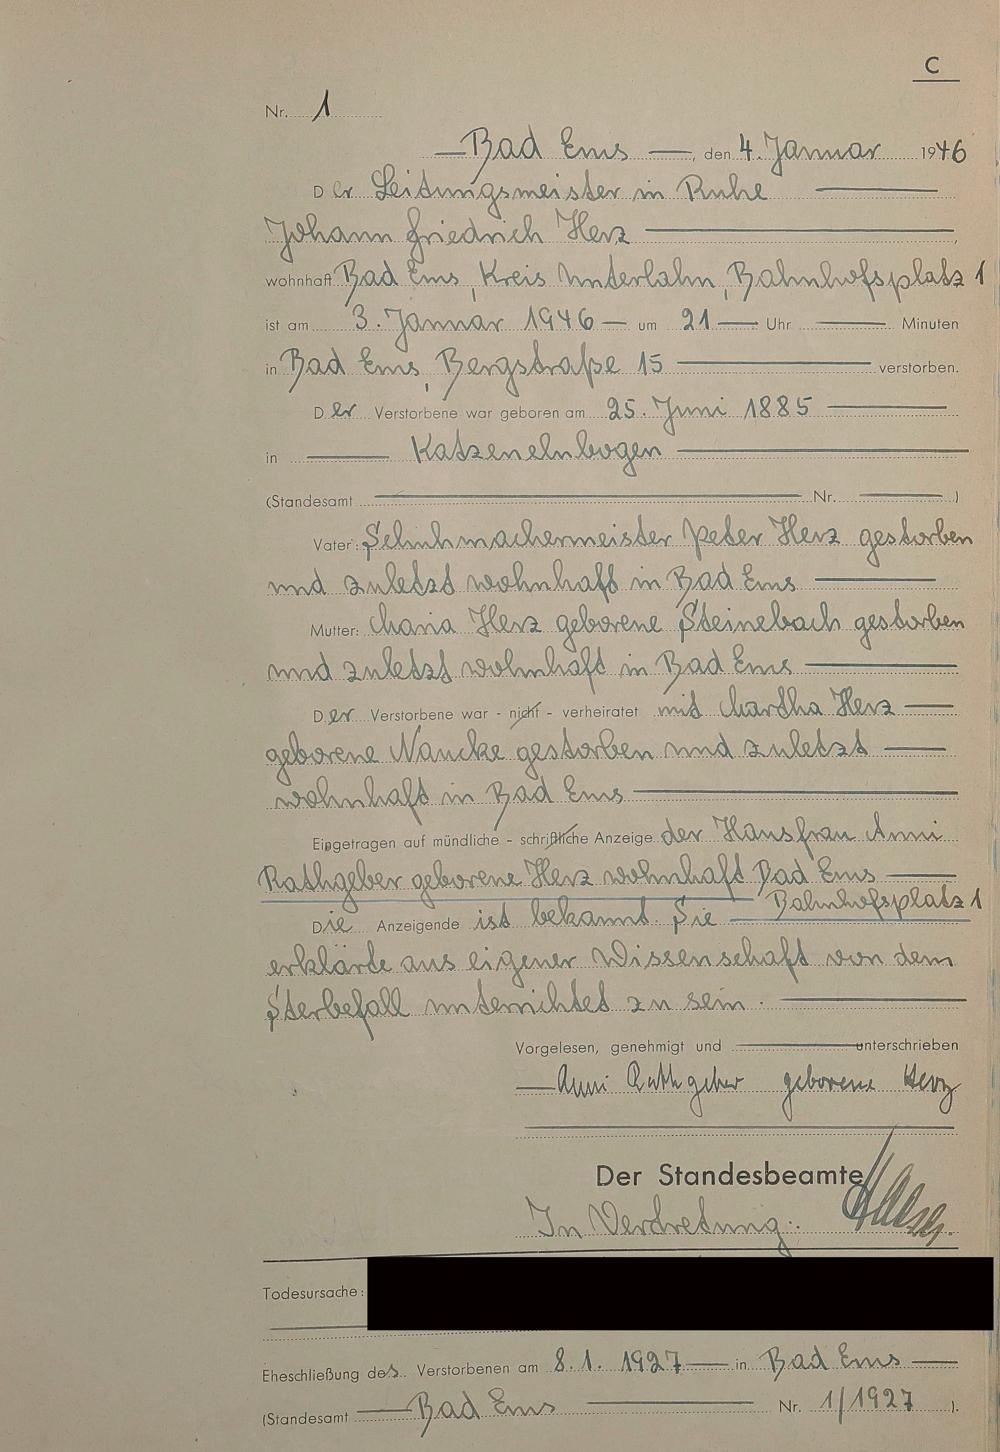 C
Nr. 1
Bad Ems, den 4. Januar 1946
Der Leitungsmeister in Ruhe
Johann Friedrich Herz,
wohnhaft Bad Ems, Kreis Unterlahn, Bahnhofsplatz 1
ist am 3. Januar 1946 um 21 Uhr Minuten
in Bad Ems, Bergstraße 15 verstorben.
Der Verstorbene war geboren am 25. Juni 1885
in Katzenelnbogen
(Standesamt Nr. )
Vater: Schuhmachermeister Peter Herz gestorben
und zuletzt wohnhaft in Bad Ems
Mutter: Maria Herz geborene Steinebach gestorben
und zuletzt wohnhaft in Bad Ems
Der Verstorbene war - nicht - verheiratet mit Martha Herz
geborene Naucke gestorben und zuletzt
wohnhaft in Bad Ems
Eingetragen auf mündliche - schriftliche Anzeige der Hausfrau Anni
Rathgeber geborene Herz wohnhaft Bad Ems
Bahnhofsplatz 1
Die Anzeigende ist bekannt. Sie
erklärte aus eigener Wissenschaft von dem
Sterbefall unterrichtet zu sein.
Vorgelesen, genehmigt und unterschrieben
Anni Rathgeber geborene Herz
Der Standesbeamte
In Vertretung:
Todesursache:
Eheschließung des Verstorbenen am 8.1.1927 in Bad Ems
(Standesamt Bad Ems Nr. 1/1927 ).